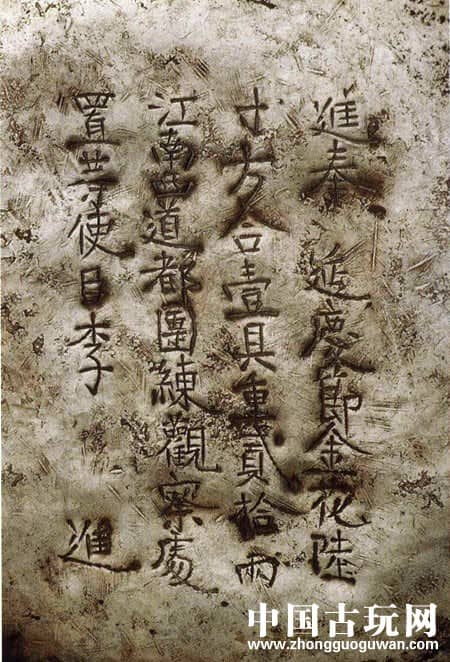 進奉 延慶節金花陸
寸方合壹具重貳拾兩
江南西道都團練觀察處
置等使臣李 進
中国古玩网
www.zhongguoguwan.com